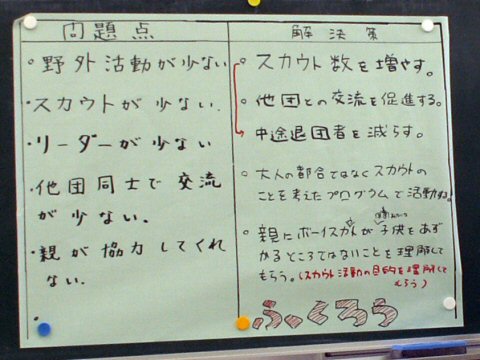 問題点
・野外活動が少ない
・スカウトが少ない.
・リーダーが少ない
・他団同士で交流
が少ない.
・親が協力してくれ
ない.
・
解決策
○スカウト数を増やす。
○他団との交流を促進する。
○中途退団者を減らす。
○大人の都合ではなくスカウトの
ことを考えたプログラムで活動する!
○親にボーイスカウトが子供をあず
かるところではないことを理解して
もらう。(スカウト活動の目的を理解して
もらう)
ふくろう